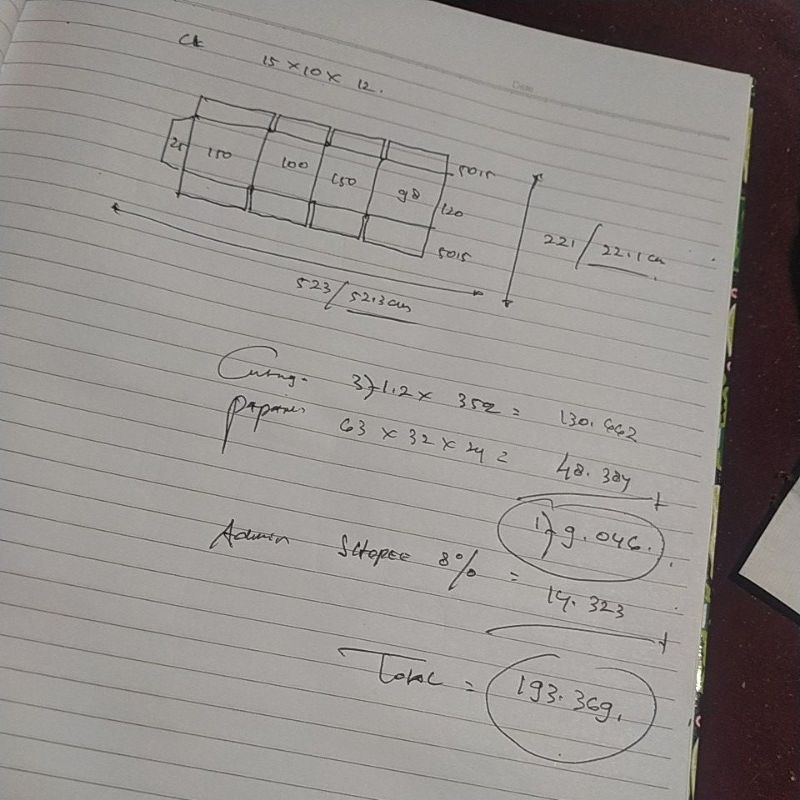 CK 15 × 10 × 12.
25 150 100 150 98
50,5
120
50,5
221 / 22.1 cm
523 / 52.3 cm
371.2 × 352 = 130.662
63 × 32 × 24 = 48.384
+
179.046.
Admin SHOPEE 8% = 14.323
+
Total = 193.369.